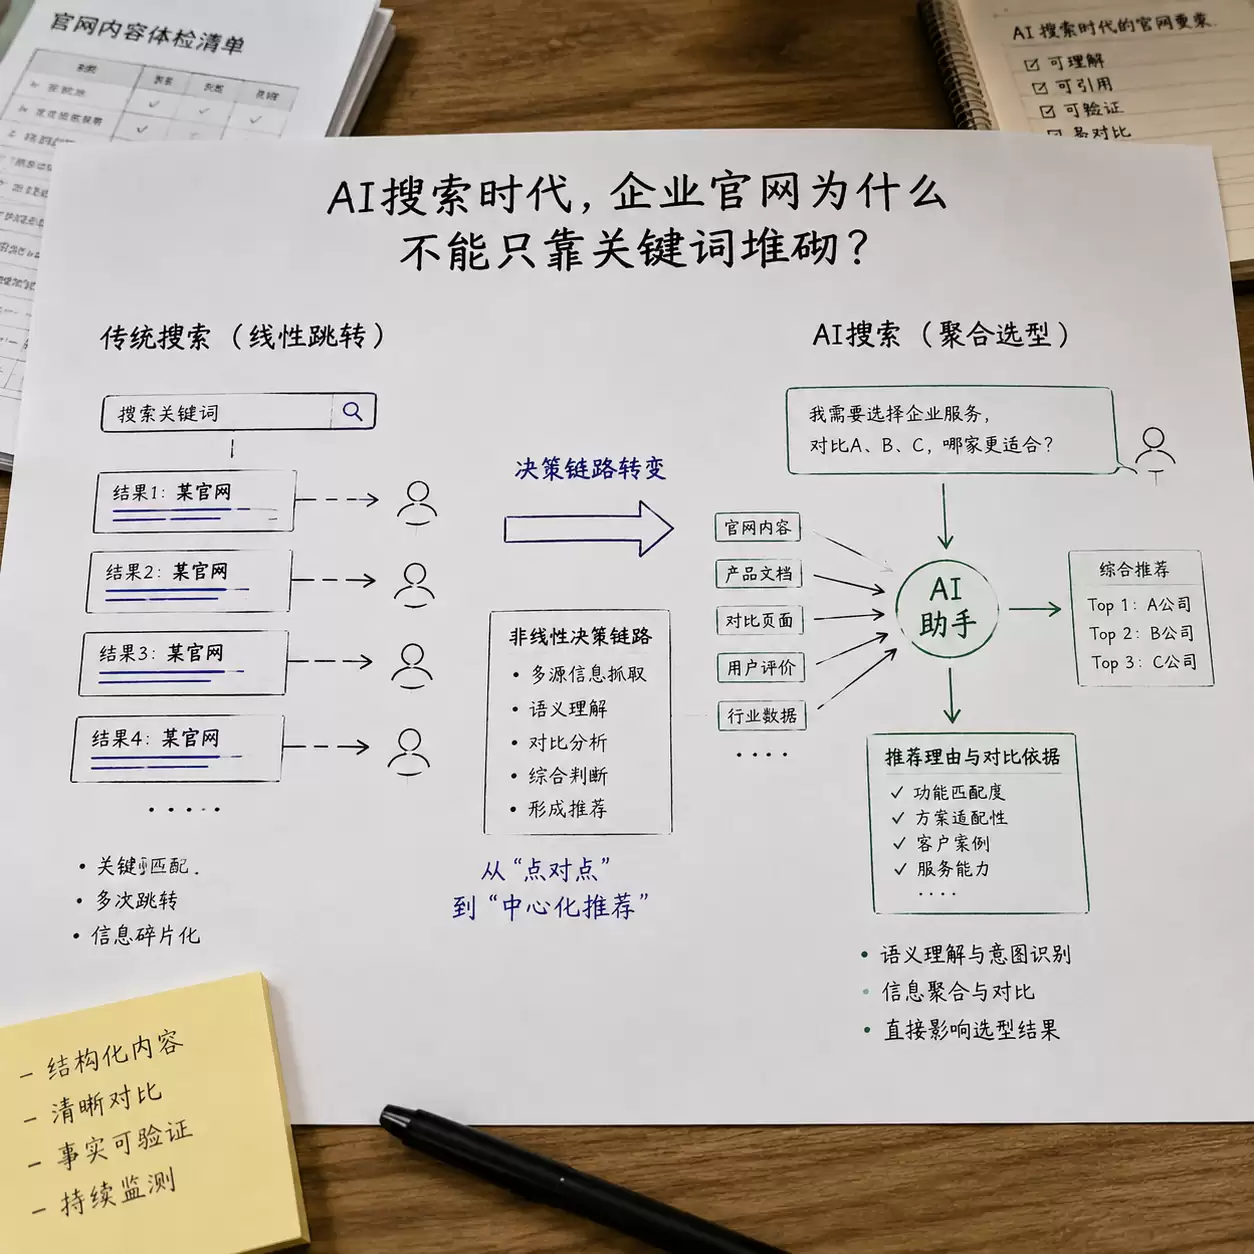 官网内容体检清单
AI 搜索时代的官网要求
可理解
可引用
可验证
易对比
AI搜索时代，企业官网为什么
不能只靠关键词堆砌？
传统搜索（线性跳转）
搜索关键词
结果1：某官网
结果2：某官网
结果3：某官网
结果4：某官网
····
• 关键词匹配
• 多次跳转
• 信息碎片化
决策链路转变
非线性决策链路
• 多源信息抓取
• 语义理解
• 对比分析
• 综合判断
• 形成推荐
从“点对点”
到“中心化推荐”
AI搜索（聚合选型）
我需要选择企业服务，
对比A、B、C，哪家更适合？
官网内容
产品文档
对比页面
用户评价
行业数据
····
AI
助手
综合推荐
Top 1：A公司
Top 2：B公司
Top 3：C公司
推荐理由与对比依据
✓ 功能匹配度
✓ 方案适配性
✓ 客户案例
✓ 服务能力
····
• 语义理解与意图识别
• 信息聚合与对比
• 直接影响选型结果
– 结构化内容
– 清晰对比
– 事实可验证
– 持续监测